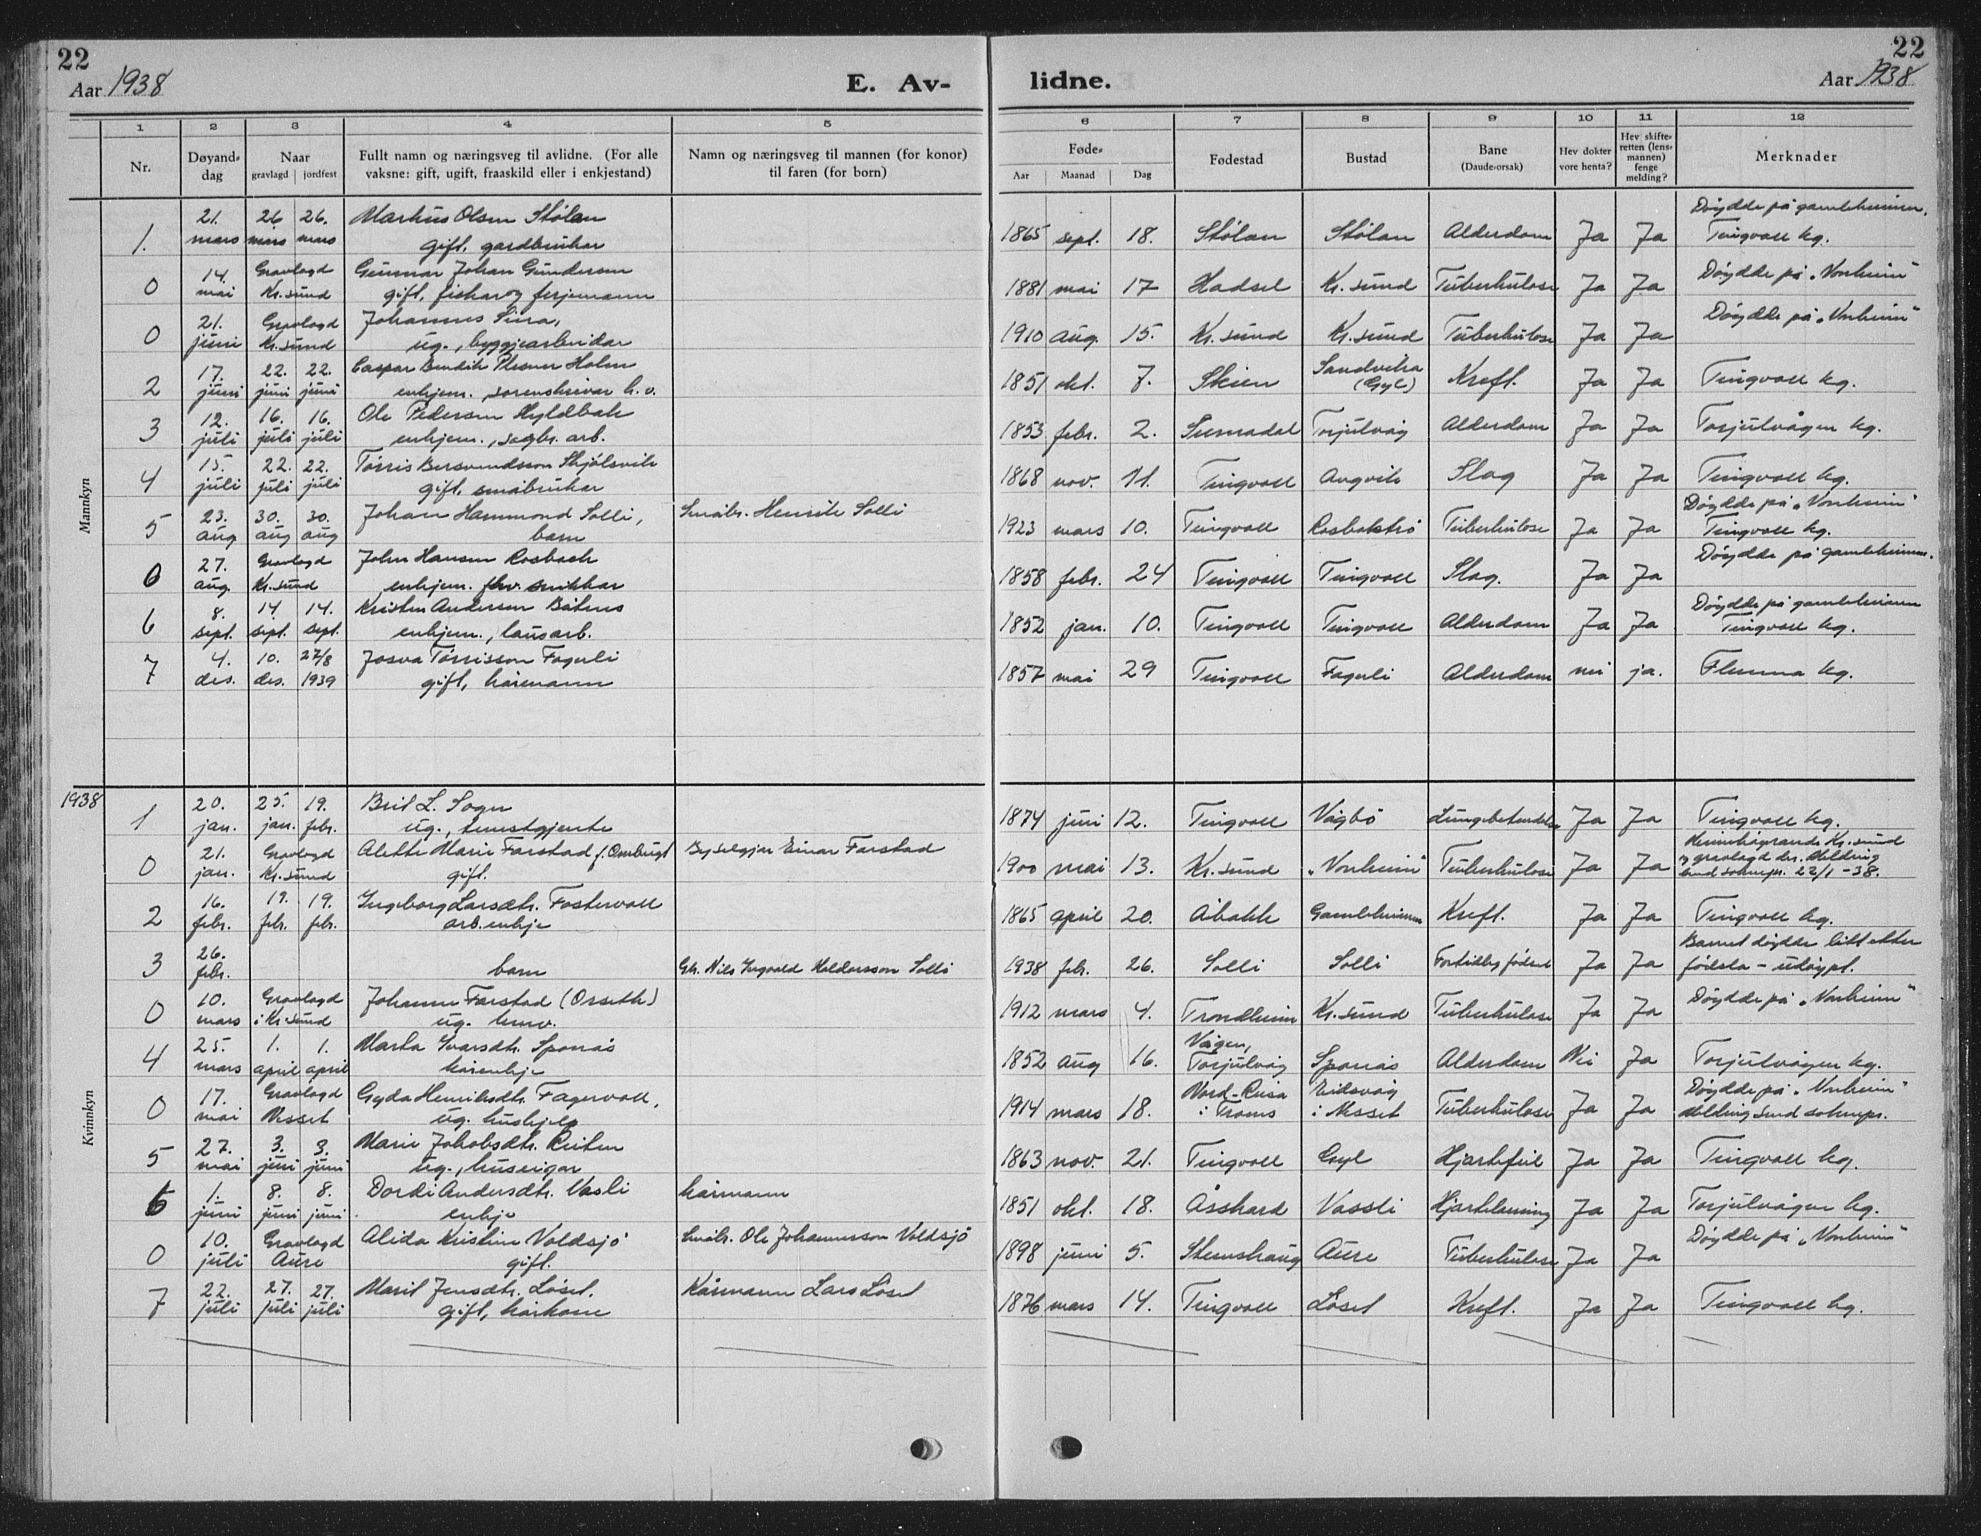 22
22
Aar 1938
E. Av-
lidne.
Aar 1938
1 2 3 4 5 6 7 8 9 10 11 12
Nr.
Døyand-
dag
Naar
gravlagd jordfest
Fullt namn og næringsveg til avlidne. (For alle
vaksne: gift, ugift, fraaskild eller i enkjestand)
Namn og næringsveg til mannen (for konor)
til faren (for born)
Føde-
Aar Maanad Dag
Fødestad
Bustad
Bane
(Daude-orsak)
Hev dokter
vore henta?
Hev skifte-
retten (lens-
mannen)
fenge
melding?
Merknader
Mannkyn
21. 26 26. Markus Olsen Stølan Døydde på gamleheimen.
1. mars mars mars gift, gardbrukar 1865 sept. 18. Stølan Stølan Alderdom Ja Ja Tingvoll kg.
14. Gravlagd Gunnar Johan Gundersen Døydde på "Vonheim"
0 mai Kr.sund gift, fiskar og ferjemann 1881 mai 17 Hadsel Kr. sund Tuberkulose Ja Ja
21. Gravlagd Johannes Døydde på "Vonheim"
0 juni Kr.sund ug., byggjearbeidar 1910 aug. 15. Kr. sund Kr. sund Tuberkulose Ja Ja
17. 22. 22. Caspar Holm Sandvika
2 juni juni juni enkjem., sorenskrivar 1851 okt. 7. Skien Kreft. Ja Ja Tingvoll kg.
12. 16. 16. Ole Pedersen Hyldbak
3 juli juli juli enkjem., sagbr. arb. 1853 febr. 2. Surnadal Torjulvåg Alderdom Ja Ja Torjulvågen kg.
15. 22. 22. Tørris Bersvendsson Skjølsvik
4 juli juli juli gift, småbrukar 1868 nov. 11. Tingvoll Angvik Slag Ja Ja Tingvoll kg.
23. 30. 30. Johan Hammond Solli, Småbr. Henrik Solli Døydde på "Vonheim"
5 aug aug aug barn 1923 mars 10. Tingvoll Tuberkulose Ja Ja Tingvoll kg.
27. Gravlagd John Hansen Rosbach Døydde på gamleheimen.
0 aug. Kr.sund enkjem. fhv. snikkar 1858 febr. 24 Tingvoll Tingvoll Slag. Ja Ja
8. 14. 14. Kristen Andersen Båtnes Døydde på gamleheimen
6 sept. sept. sept. enkjem., lausarb. 1852 jan. 10. Tingvoll Tingvoll Alderdom Ja Ja Tingvoll kg.
4. 10. 27/8 Josva Tørrisson Fagerli
7 des. des. 1939 gift, kårmann 1857 mai 29 Tingvoll Fagerli Alderdom nei ja. Flemma kg.
1938
Kvinnkyn
20. 25. 19. Brit L. Sogn
1 jan. jan. febr. ug., tenestgjente 1874 juni 12. Tingvoll Vågbø Ja Ja Tingvoll kg.
21. Gravlagd Alette Marie Farstad Einar Farstad Kr. sund
0 jan. Kr. sund gift. 1900 mai 13. Kr. sund "Vonheim" Tuberkulose Ja Ja og gravlagd der. Melding
send soknepr. 22/1-38.
16. 19. 19. Ingeborg Larsdtr. Fostervoll
2 febr. febr. febr. arb. enkje 1865 april 20. Gamleheimen Kreft. Ja Ja Tingvoll kg.
26. Barnet døydde litt etter
3 febr. barn Nils Ingvald Haldorsson Solli 1938 febr. 26. Solli Solli Ja Ja fødsla - udøypt.
10. Gravlagd Johanne Farstad (Orseth) Døydde på "Vonheim"
0 mars i Kr. sund ug. 1912 mars 4. Trondheim Kr. sund Tuberkulose Ja Ja
25. 1. 1. Marta Ivarsdtr. Sponås Vågen,
4 mars april april kårenkje 1852 aug 16. Torjulvåg Sponås Alderdom Nei Ja Torjulvågen kg.
17. Gravlagd Gyda Henriksdtr. Fagervoll, Nord-Reisa Eidsvåg Døydde på "Vonheim"
0 mai Nesset ug. hushjelp 1914 mars 18. i Troms i Nesset Tuberkulose Ja Ja Melding send soknepr.
27. 3. 3. Marie Jakobsdtr. Reiten
5 mai juni juni ug., huseigar 1863 nov. 21. Tingvoll Gyl Hjartefeil Ja Ja Tingvoll kg.
1. 8. 8. Dordi Andersdtr. Vasli kårmann
6 juni juni juni enkje 1851 okt. 18. Åsskard Vassli Hjartelamming Ja Ja Torjulvågen kg.
10. Gravlagd Alida Kristine Voldsjö Småbr. Ole Johannesson Voldsjö Døydde på "Vonheim"
0 juli Aure gift. 1898 juni 5. Stemshaug Aure Tuberkulose Ja Ja
22. 27. 27. Marit Jensdtr. Løset. Kårmann Lars Løset
7 juli juli juli gift, kårkone 1876 mars 14. Tingvoll Løset Kreft. Ja Ja Tingvoll kg.